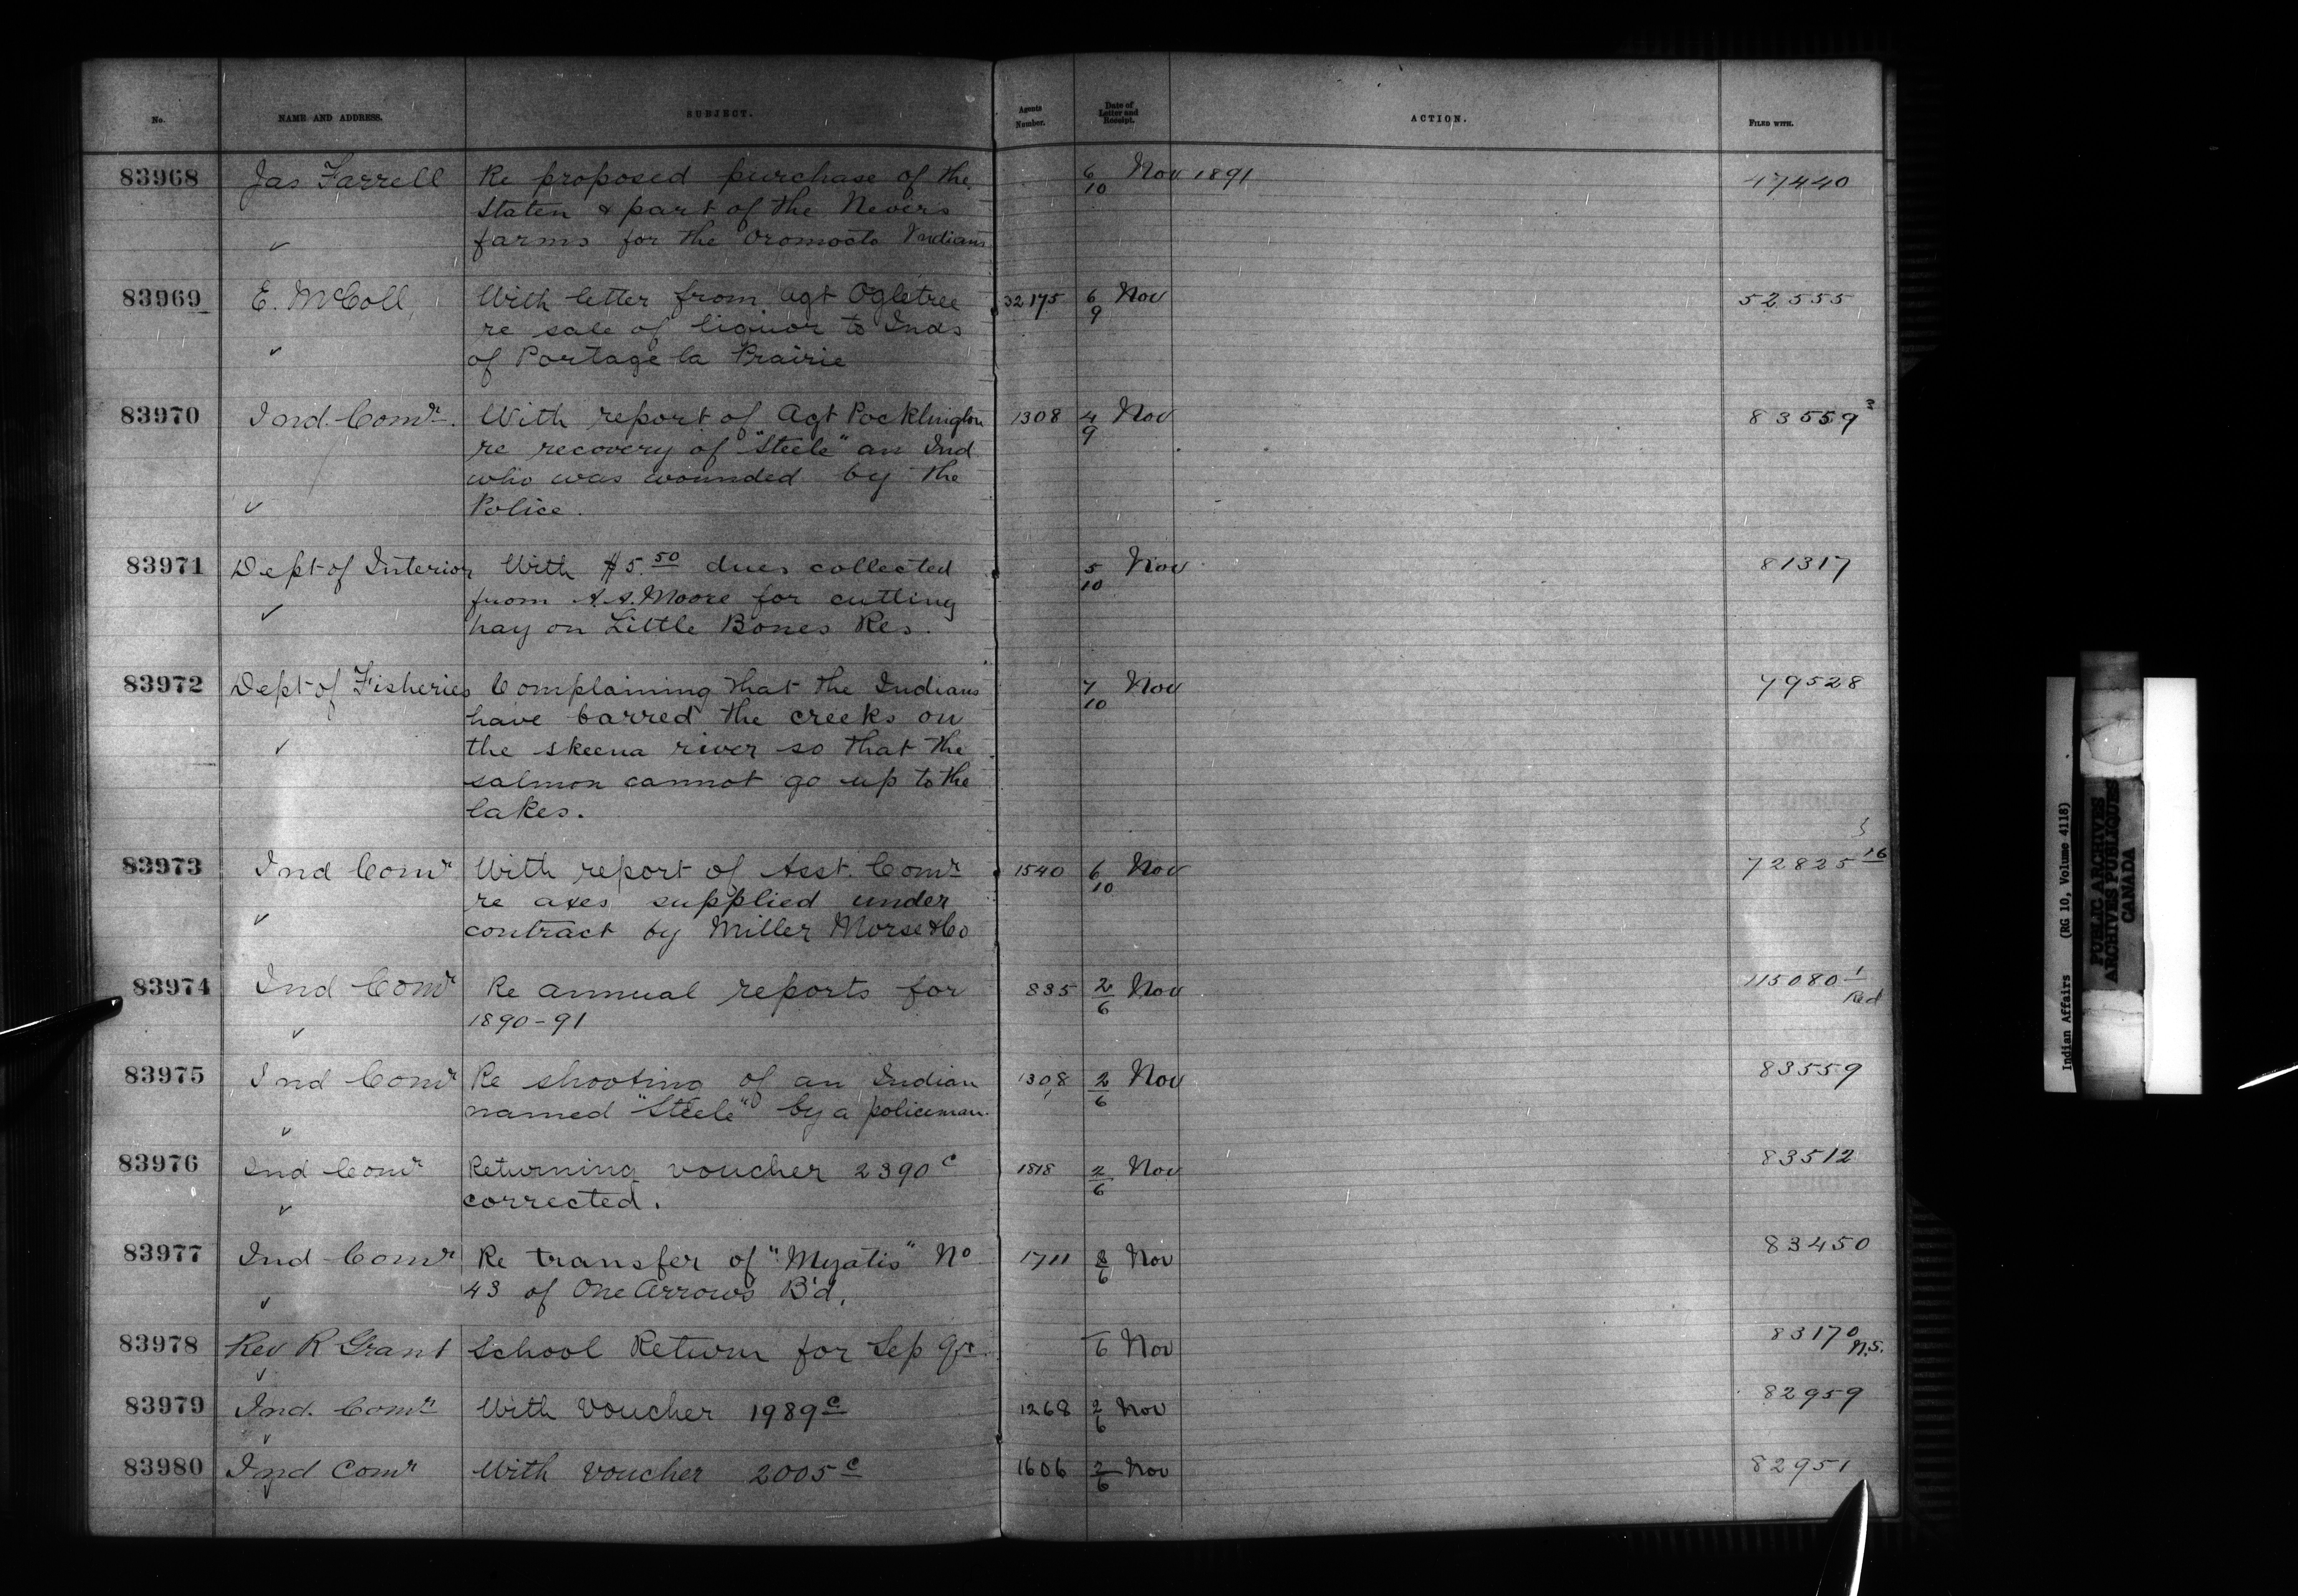 No. NAME AND ADDRESS. SUBJECT. Agents Number. Date of Letter and Receipt. ACTION. FILED WITH.
83968 Jas Farrell Re proposed purchase of the 6/10 Nov 1891 47440
Staten & part of the Nevers
✓ farms for the Oromocto Indians
83969 E. McColl, With letter from Agt Ogletree 32175 6/9 Nov 52555
re sale of liquor to Inds
✓ of Portage la Prairie
83970 Ind. Comr. With report of Agt Pocklington 1308 4/9 Nov 83559 3
re recovery of "Steele" an Ind
who was wounded by the
✓ Police.
83971 Dept of Interior With $5.50 dues collected 5/10 Nov 81317
✓ from A.A. Moore for cutting
hay on Little Bones Res.
83972 Dept of Fisheries Complaining that the Indians 7/10 Nov 79528
have barred the creeks on
✓ the skeena river so that the
salmon cannot go up to the
lakes.
83973 Ind Comr With report of Asst. Comr 1540 6/10 Nov 72825 16
✓ re axes supplied under
contract by Miller Morse & Co
83974 Ind Comr Re annual reports for 835 2/6 Nov 115080 1
Red
✓ 1890-91
83975 Ind Comr Re shooting of an Indian 1308 2/6 Nov 83559
✓ named "Steele" by a policeman.
83976 Ind Comr Returning voucher 2390 c 1818 2/6 Nov 83512
✓ corrected.
83977 Ind Comr Re transfer of "Myatis" No 1711 /6 Nov 83450
✓ 43 of One Arrows B'd.
83978 Rev R Grant School Return for Sep Qr. /6 Nov 83170
N.S.
✓
83979 Ind. Comr With Voucher 1989 c 1268 2/6 Nov 82959
✓
83980 Ind Comr With Voucher 2005 c 1606 2/6 Nov 82951
Indian Affairs (RG 10, Volume 4118)
PUBLIC ARCHIVES
ARCHIVES PUBLIQUES
CANADA